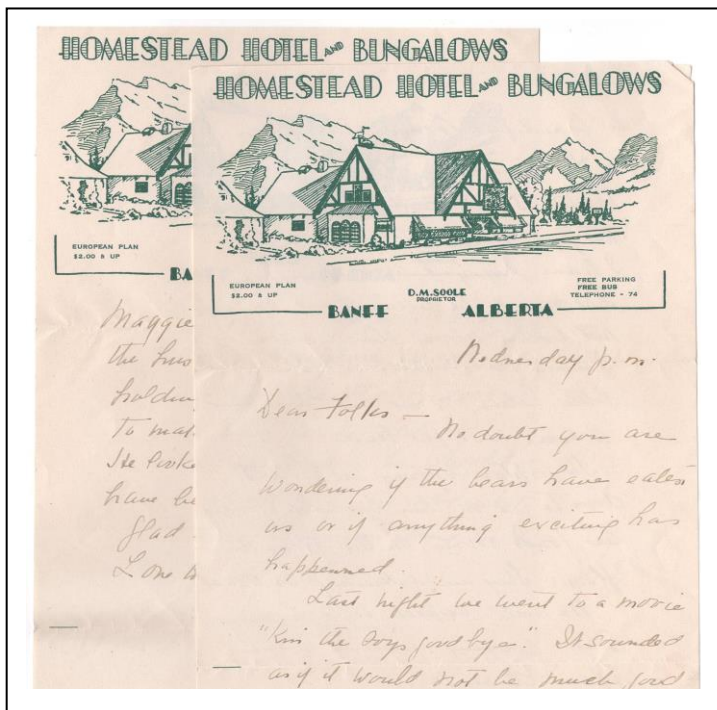 HOMESTEAD HOTEL AND BUNGALOWS
EUROPEAN PLAN
$2.00 & UP
BA
Maggie
the hus
holdin
to mat
He looke
have be
glad
Love
HOMESTEAD HOTEL AND BUNGALOWS
EUROPEAN PLAN
$2.00 & UP
D.M. SOOLE
PROPRIETOR
FREE PARKING
FREE BUS
TELEPHONE - 74
BANFF ALBERTA
Wednesday p.m.
Dear Folks —
No doubt you are
wondering if the bears have eaten
us or if anything exciting has
happenned.
Last night we went to a movie
"Kiss the boys good bye". It sounded
as if it would not be much good